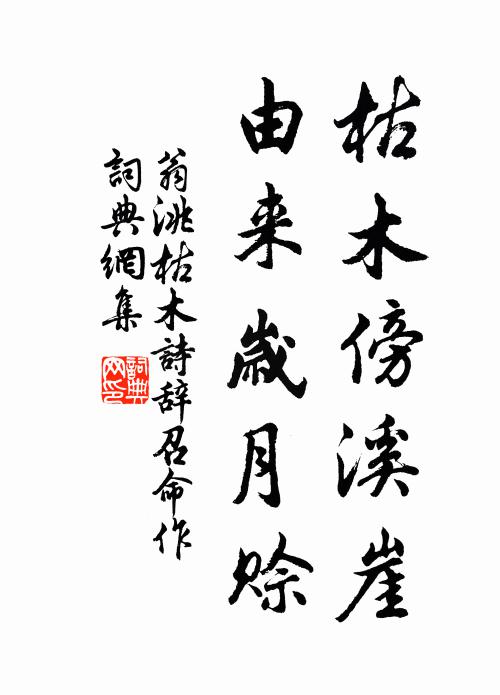 枯木傍溪崖
由来歳月赊
翁洮枯木詩辞召命作
詞典網集
詞典網印